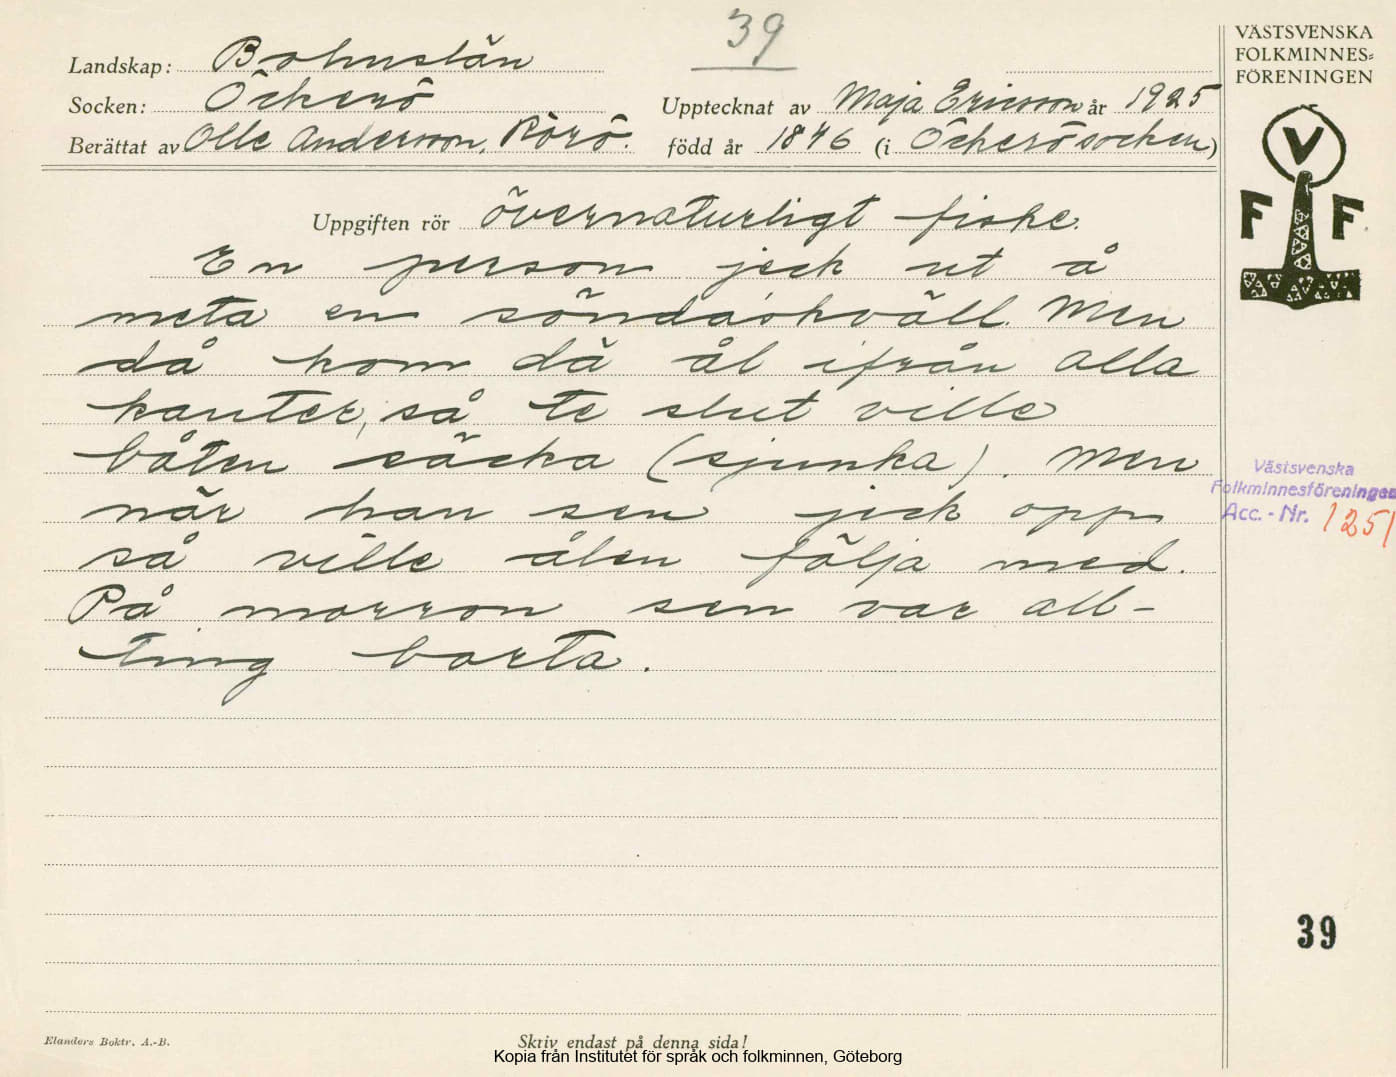 39
VÄSTSVENSKA
FOLKMINNES=
FÖRENINGEN
Landskap: Bohuslän
Socken: Öckerö
Upptecknat av Maja Ericson år 1925
Berättat av Olle Andersson, Rörö.
född år 1846 (i Öckerö socken)
V
F F
Uppgiften rör övernaturligt fiske.
En person jeck ut å
meta en söndáskväll. Men
då kom dä ål ifrån alla
kanter, så te slut ville
båten säcka (sjunka). Men
när han sen jick opp
så ville ålen följa med.
På morron sen var all-
ting borta.
Västsvenska
Folkminnesföreningen
Acc. - Nr. 1251
39
Elanders Boktr. A.-B.
Skriv endast på denna sida!
Kopia från Institutet för språk och folkminnen, Göteborg